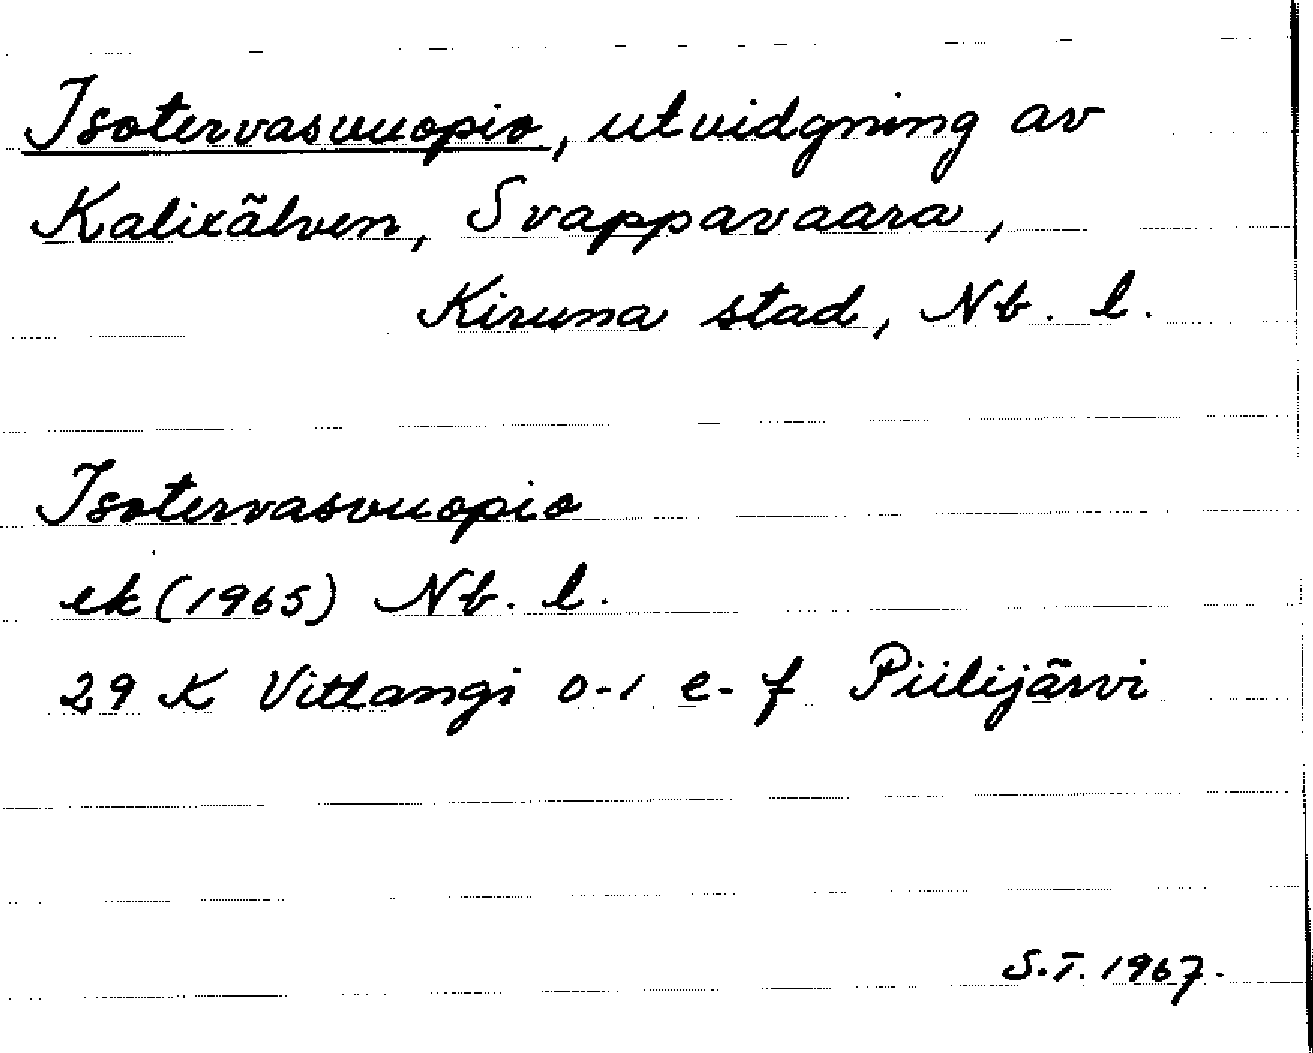 Isotervasvuopio, utvidgning av
Kalixälven, Svappavaara,
Kiruna stad, Nb. l.
Isotervasvuopio
ek (1965) Nb. l.
29 K Vittangi 0-1 e-f Piilijärvi
S.T. 1967.